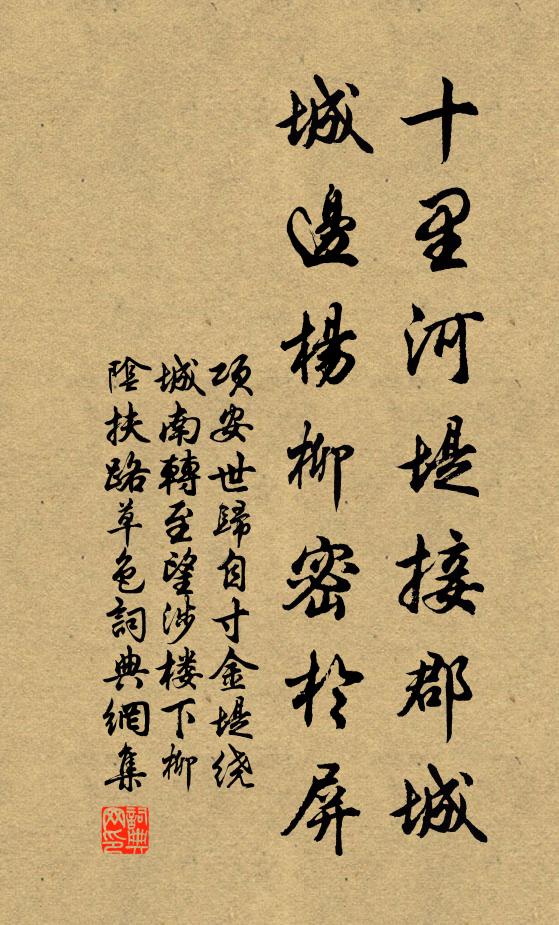 十里河堤接郡城
城邊楊柳密於屏
項安世歸自寸金堤绕
城南轉至望涉楼下柳
陰扶路草色詞典網集
詞典网印